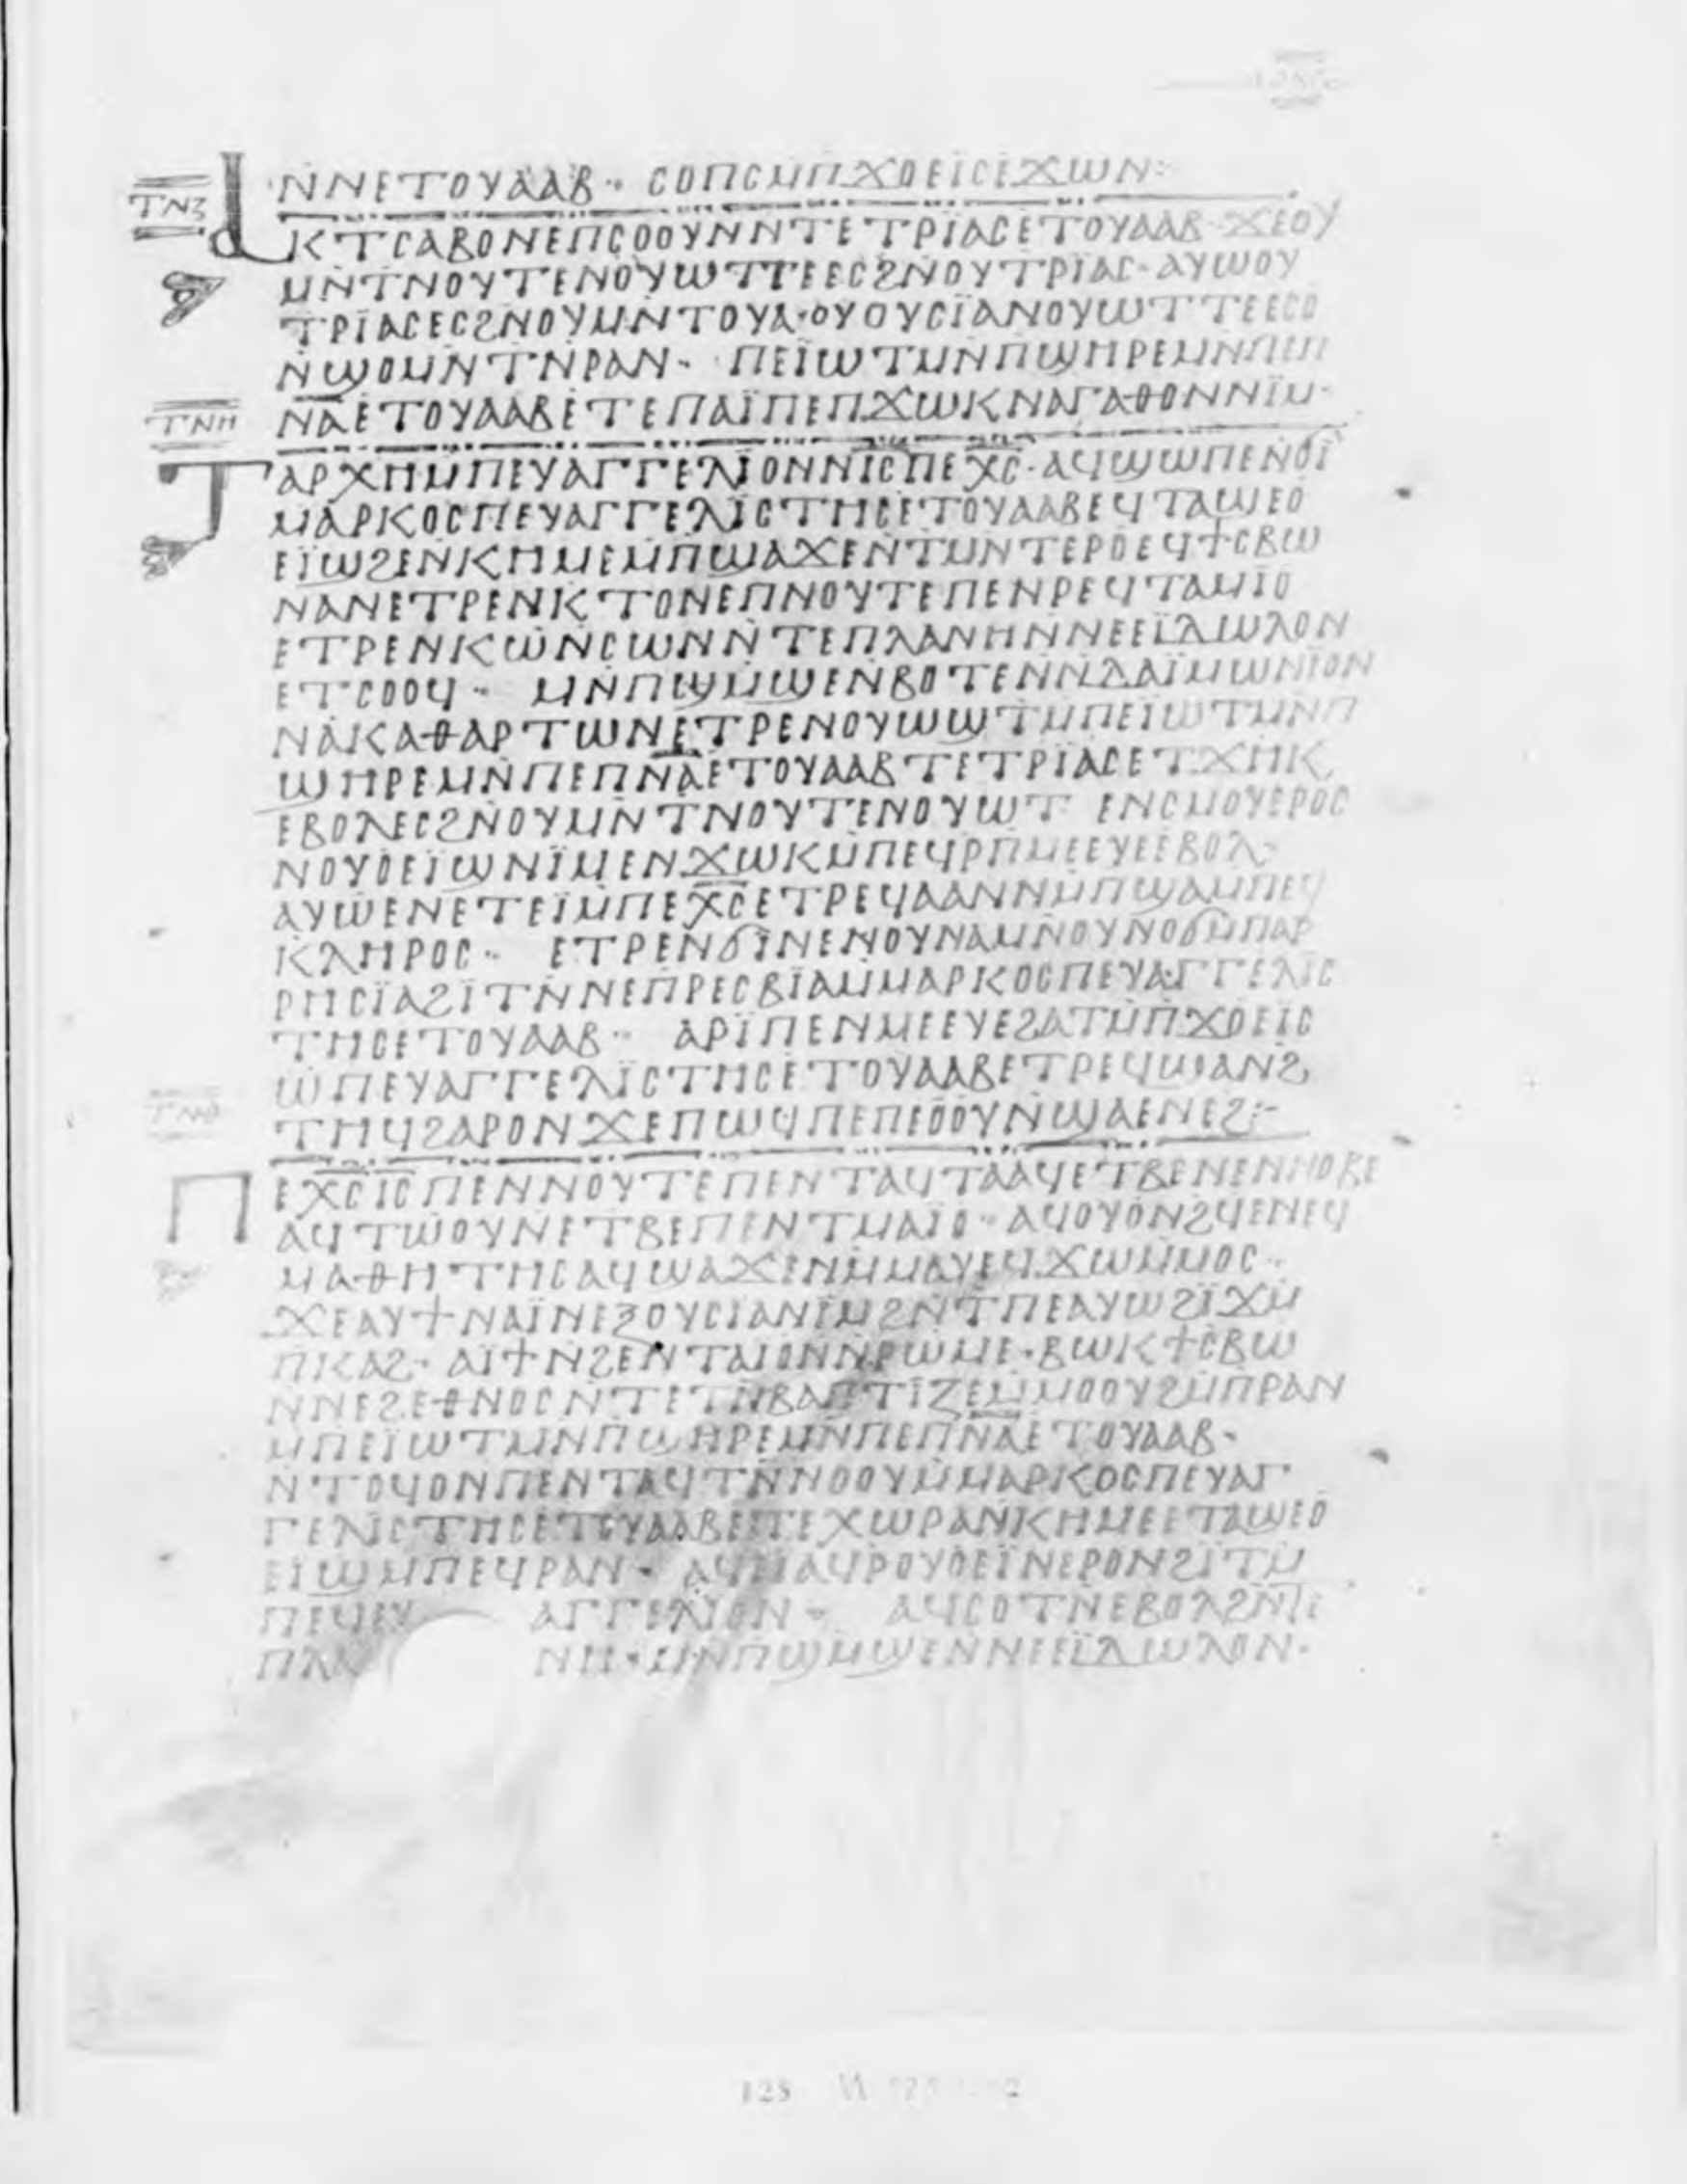 ⲛ̀ⲛⲉⲧⲟⲩⲁⲁⲃ·· ⲥⲟⲡⲥⲙ̀ⲡϫⲟⲉⲓ̈ⲥⲉ̀ϫⲱⲛ:
ⲧⲛⲍ
ⲕⲧⲥⲁⲃⲟⲛⲉⲡⲥⲟⲟⲩⲛⲛ̀ⲧⲉⲧⲣⲓ̈ⲁⲥⲉⲧⲟⲩⲁⲁⲃ·ϫⲉⲟⲩ
ⲙⲛ̀ⲧⲛⲟⲩⲧⲉⲛⲟⲩⲱⲧⲧⲉⲉⲥϩⲛ̀ⲟⲩⲧⲣⲓ̈ⲁⲥ·ⲁⲩⲱⲟⲩ
ⲧⲣⲓ̈ⲁⲥⲉⲥϩⲛ̀ⲟⲩⲙⲛ̀ⲧⲟⲩⲁ·ⲟⲩⲟⲩⲥⲓ̈ⲁⲛⲟⲩⲱⲧⲧⲉⲉⲥⲟ
ⲛ̀ϣⲟⲙⲛ̀ⲧⲛ̀ⲣⲁⲛ·· ⲡⲉⲓ̈ⲱⲧⲙⲛ̀ⲡϣⲏⲣⲉⲙⲛ̀ⲡⲉⲡ
ⲧⲛⲏ
ⲛ̅ⲁ̅ⲉⲧⲟⲩⲁⲁⲃⲉ̀ⲧⲉⲡⲁⲓ̈ⲡⲉⲡϫⲱⲕⲛⲁⲅⲁⲑⲟⲛⲛⲓ̈ⲙ·
ⲧⲁⲣⲭⲏⲙ̀ⲡⲉⲩⲁⲅⲅⲉⲗⲓ̈ⲟⲛⲛ̀ⲓ̅ⲥ̅ⲡⲉⲭ̅ⲥ̅·ⲁϥϣⲱⲡⲉⲛ̀ϭⲓ̈
ⲙⲁⲣⲕⲟⲥⲡⲉⲩⲁⲅⲅⲉⲗⲓ̈ⲥⲧⲏⲥⲉⲧⲟⲩⲁⲁⲃⲉϥⲧⲁϣⲉⲟ̀
ⲉⲓ̈ϣϩⲉⲛ̀ⲕⲏⲙⲉⲙ̀ⲡϣⲁϫⲉⲛ̀ⲧⲙⲛ̀ⲧⲉⲣⲟ̀ⲉϥϯⲥⲃⲱ
ⲛⲁⲛⲉⲧⲣⲉⲛⲕⲧⲟⲛⲉⲡⲛⲟⲩⲧⲉⲡⲉⲛⲣⲉϥⲧⲁⲙⲓⲟ
ⲉⲧⲣⲉⲛⲕⲱ̀ⲛ̀ⲥⲱⲛⲛ̀ⲧⲉⲡⲗⲁⲛⲏⲛ̀ⲛⲉⲉⲓ̈ⲇⲱⲗⲟⲛ
ⲉⲧⲥⲟⲟϥ·· ⲙⲛ̀ⲡϣⲙ̀ϣⲉⲛ̀ⲃⲟⲧⲉⲛ̀ⲛⲇⲁⲓ̈ⲙⲱⲛⲓ̈ⲟⲛ
ⲛⲁ̀ⲕⲁⲑⲁⲣⲧⲱⲛⲉⲧⲣⲉⲛⲟⲩⲱϣⲧⲙ̀ⲡⲉⲓ̈ⲱⲧⲙⲛ̀ⲡ
ϣⲏⲣⲉⲙⲛ̀ⲡⲉⲡⲛ̅ⲁ̅ⲉⲧⲟⲩⲁⲁⲃⲧⲉⲧⲣⲓ̈ⲁⲥⲉⲧϫⲏⲕ
ⲉⲃⲟⲗⲉⲥϩⲛ̀ⲟⲩⲙⲛ̀ⲧⲛⲟⲩⲧⲉⲛⲟⲩⲱⲧ· ⲉⲛⲥⲙⲟⲩⲉⲣⲟⲥ
ⲛⲟⲩⲟⲉⲓ̈ϣⲛⲓ̈ⲙⲉⲛϫⲱⲕⲙ̀ⲡⲉϥⲣⲡⲙⲉⲉⲩⲉⲉ̀ⲃⲟⲗ··
ⲁⲩⲱⲉⲛⲉⲧⲉⲓ̈ⲙ̀ⲡⲉⲭ̅ⲥ̅ⲉⲧⲣⲉϥⲁⲁⲛⲛ̀ⲙ̀ⲡϣⲁⲙ̀ⲡⲉϥ
ⲕⲗⲏⲣⲟⲥ·· ⲉⲧⲣⲉⲛϭⲓ̈ⲛⲉⲛⲟⲩⲛⲁⲙⲛ̀ⲟⲩⲛⲟϭⲙ̀ⲡⲁⲣ
ⲣⲏⲥⲓ̈ⲁϩⲓ̈ⲧⲛ̀ⲛⲉⲡⲣⲉⲥⲃⲓ̈ⲁⲙ̀ⲙⲁⲣⲕⲟⲥⲡⲉⲩⲁⲅⲅⲉⲗⲓ̈ⲥ
ⲧⲏⲥⲉⲧⲟⲩⲁⲁⲃ·· ⲁⲣⲓ̈ⲡⲉⲛⲙⲉⲉⲩⲉϩⲁⲧⲙ̀ⲡϫⲟⲉⲓ̈ⲥ
ⲱ̀ⲡⲉⲩⲁⲅⲅⲉⲗⲓ̈ⲥⲧⲏⲥⲉⲧⲟⲩⲁⲁⲃⲉⲧⲣⲉϥϣⲁⲛϩ
ⲧⲏϥϩⲁⲣⲟⲛϫⲉⲡⲱϥⲡⲉⲡⲉⲟ̀ⲟⲩⲛ̀ϣⲁⲉⲛⲉϩ:-
ⲧⲛⲑ
ⲡⲉⲭ̅ⲥ̅ⲓ̅ⲥ̅ⲡⲉⲛⲛⲟⲩⲧⲉⲡⲉⲛⲧⲁϥⲧⲁⲁϥⲉⲧⲃⲉⲛⲉⲛⲛⲟⲃⲉ
ⲁϥⲧⲱⲟⲩⲛⲉⲧⲃⲉⲡⲉⲛⲧⲙⲁⲓ̈ⲟ··ⲁϥⲟⲩⲟⲛϩϥⲉⲛⲉϥ
ⲙⲁⲑⲏⲧⲏⲥⲁϥϣⲁϫⲉⲛⲙ̀ⲙⲁⲩⲉϥϫⲱⲙ̀ⲙⲟⲥ··
ϫⲉⲁⲩϯⲛⲁⲓ̈ⲛⲉⲝⲟⲩⲥⲓ̈ⲁⲛⲓ̈ⲙϩⲛ̀ⲧⲡⲉⲁⲩⲱϩⲓ̈ϫⲙ̀
ⲡⲕⲁϩ·· ⲁⲓ̈ϯⲛ̀ϩⲉⲛⲧⲁⲓⲟⲛ̀ⲛⲣⲱⲙⲉ·ⲃⲱⲕϯⲥⲃⲱ
ⲛ̀ⲛⲉϩⲉⲑⲛⲟⲥⲛ̀ⲧⲉⲧⲛ̀ⲃⲁⲡⲧⲓ̈ⲍⲉⲙ̀ⲙⲟⲟⲩϩⲙ̀ⲡⲣⲁⲛ
ⲙ̀ⲡⲉⲓ̈ⲱⲧⲙⲛ̀ⲡϣⲏⲣⲉⲙⲛ̀ⲡⲉⲡⲛ̅ⲁ̅ⲉⲧⲟⲩⲁⲁⲃ·
ⲛ̀ⲧⲟϥⲟⲛⲡⲉⲛⲧⲁϥⲧⲛ̀ⲛⲟⲟⲩⲙ̀ⲙⲁⲣⲕⲟⲥⲡⲉⲩⲁⲅ
ⲅⲉⲗⲓⲥⲧⲏⲥⲉⲧⲟⲩⲁⲁⲃⲉⲧⲉⲭⲱⲣⲁⲛ̀ⲕⲏⲙⲉⲉⲧⲁϣⲉⲟ̀
ⲉⲓ̈ϣⲙ̀ⲡⲉϥⲣⲁⲛ·· ⲁϥⲣⲟⲩⲟⲉⲓ̈ⲛⲉⲣⲟⲛϩⲓ̈ⲧⲙ̀
ⲡⲉϥⲉⲩ ⲁⲅⲅⲉⲗⲓⲟⲛ·· ⲁϥⲥⲟⲧⲛ̀ⲉⲃⲟⲗϩⲛ̀ⲧⲉ
ⲡⲗⲁ ⲛⲏ·ⲙⲛ̀ⲡϣⲙ̀ϣⲉⲛ̀ⲛⲉⲉⲓ̈ⲇⲱⲗⲟⲛ·